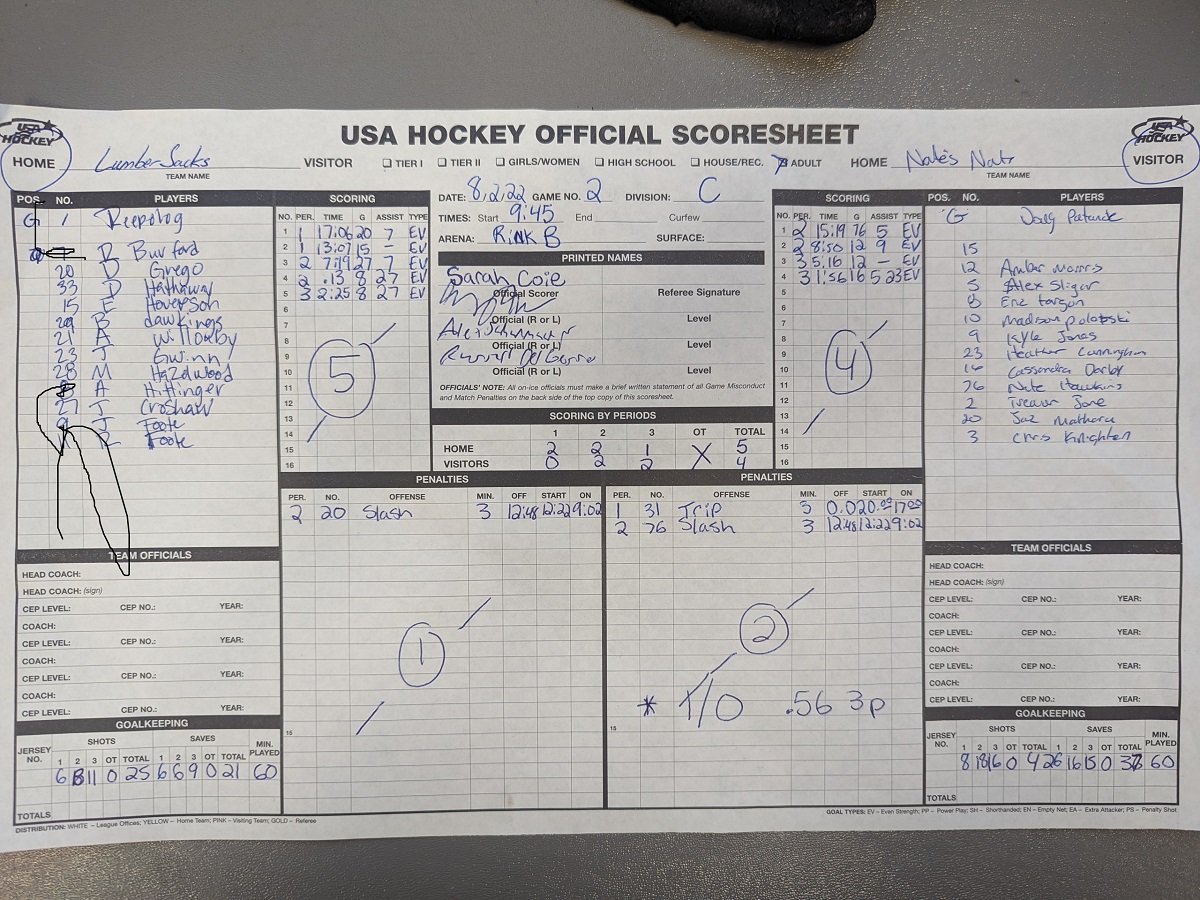 USA HOCKEY OFFICIAL SCORESHEET
USA HOCKEY
HOME LumberJacks VISITOR ☐ TIER I ☐ TIER II ☐ GIRLS/WOMEN ☐ HIGH SCHOOL ☐ HOUSE/REC. ☒ ADULT HOME Nate's VISITOR
TEAM NAME TEAM NAME
POS. NO. PLAYERS
G 1
R Burford
20 D Grego
33 D Hathaway
15 E Hoverson
29 B dawkings
21 A Willoxby
23 J Gwinn
28 M Hazdwood
8 A Hittinger
27 J Croshaw
9 J Foote
R Foote
SCORING
NO. PER. TIME G ASSIST TYPE
1 1 17:06 20 7 EV
2 1 13:07 15 - EV
3 2 7:19 27 7 EV
4 2 .13 8 27 EV
5 3 2:25 8 27 EV
6
7
8
9
10
11
12
13
14
15
16
5
DATE: 8,2,22 GAME NO. 2 DIVISION: C
TIMES: Start 9:45 End Curfew
ARENA: Rink B SURFACE:
PRINTED NAMES
Sarah Coie
Official Scorer Referee Signature
Official (R or L) Level
Official (R or L) Level
Official (R or L) Level
OFFICIALS' NOTE: All on-ice officials must make a brief written statement of all Game Misconduct
and Match Penalties on the back side of the top copy of this scoresheet.
SCORING BY PERIODS
1 2 3 OT TOTAL
HOME 2 2 1 X 5
VISITORS 0 2 2 4
SCORING
NO. PER. TIME G ASSIST TYPE
1 2 15:19 76 5 EV
2 2 8:50 12 9 EV
3 3 5:16 12 - EV
4 3 1:56 16 5 23 EV
5
6
7
8
9
10
11
12
13
14
15
16
4
POS. NO. PLAYERS
G Doug Patrude
15
12 Amber Morris
5 Alex Sligar
8 Eric fargon
10 Madison polotski
9 Kyle Jones
23 Heather Cunningham
16 Cassondra Darby
76 Nate Hawkins
2 Trevor Jone
20 Jaz Mathara
3 Chris Knighten
PENALTIES
PER. NO. OFFENSE MIN. OFF START ON
2 20 Slash 3 12:48 12:22 9:02
15
1
PENALTIES
PER. NO. OFFENSE MIN. OFF START ON
1 31 Trip 3 0.0 20:00 17:00
2 76 Slash 3 12:48 12:22 9:02
2
* T/O .56 3p
15
TEAM OFFICIALS
HEAD COACH:
HEAD COACH: (sign)
CEP LEVEL: CEP NO.: YEAR:
COACH:
CEP LEVEL: CEP NO.: YEAR:
COACH:
CEP LEVEL: CEP NO.: YEAR:
COACH:
CEP LEVEL: CEP NO.: YEAR:
GOALKEEPING
JERSEY NO. SHOTS SAVES MIN. PLAYED
1 2 3 OT TOTAL 1 2 3 OT TOTAL
6 8 11 0 25 6 6 9 0 21 60
TOTALS
TEAM OFFICIALS
HEAD COACH:
HEAD COACH: (sign)
CEP LEVEL: CEP NO.: YEAR:
COACH:
CEP LEVEL: CEP NO.: YEAR:
COACH:
CEP LEVEL: CEP NO.: YEAR:
COACH:
CEP LEVEL: CEP NO.: YEAR:
GOALKEEPING
JERSEY NO. SHOTS SAVES MIN. PLAYED
1 2 3 OT TOTAL 1 2 3 OT TOTAL
8 18 16 0 42 6 16 15 0 37 60
TOTALS
DISTRIBUTION: WHITE – League Offices; YELLOW – Home Team; PINK – Visiting Team; GOLD – Referee
GOAL TYPES: EV – Even Strength; PP – Power Play; SH – Shorthanded; EN – Empty Net; EA – Extra Attacker; PS – Penalty Shot